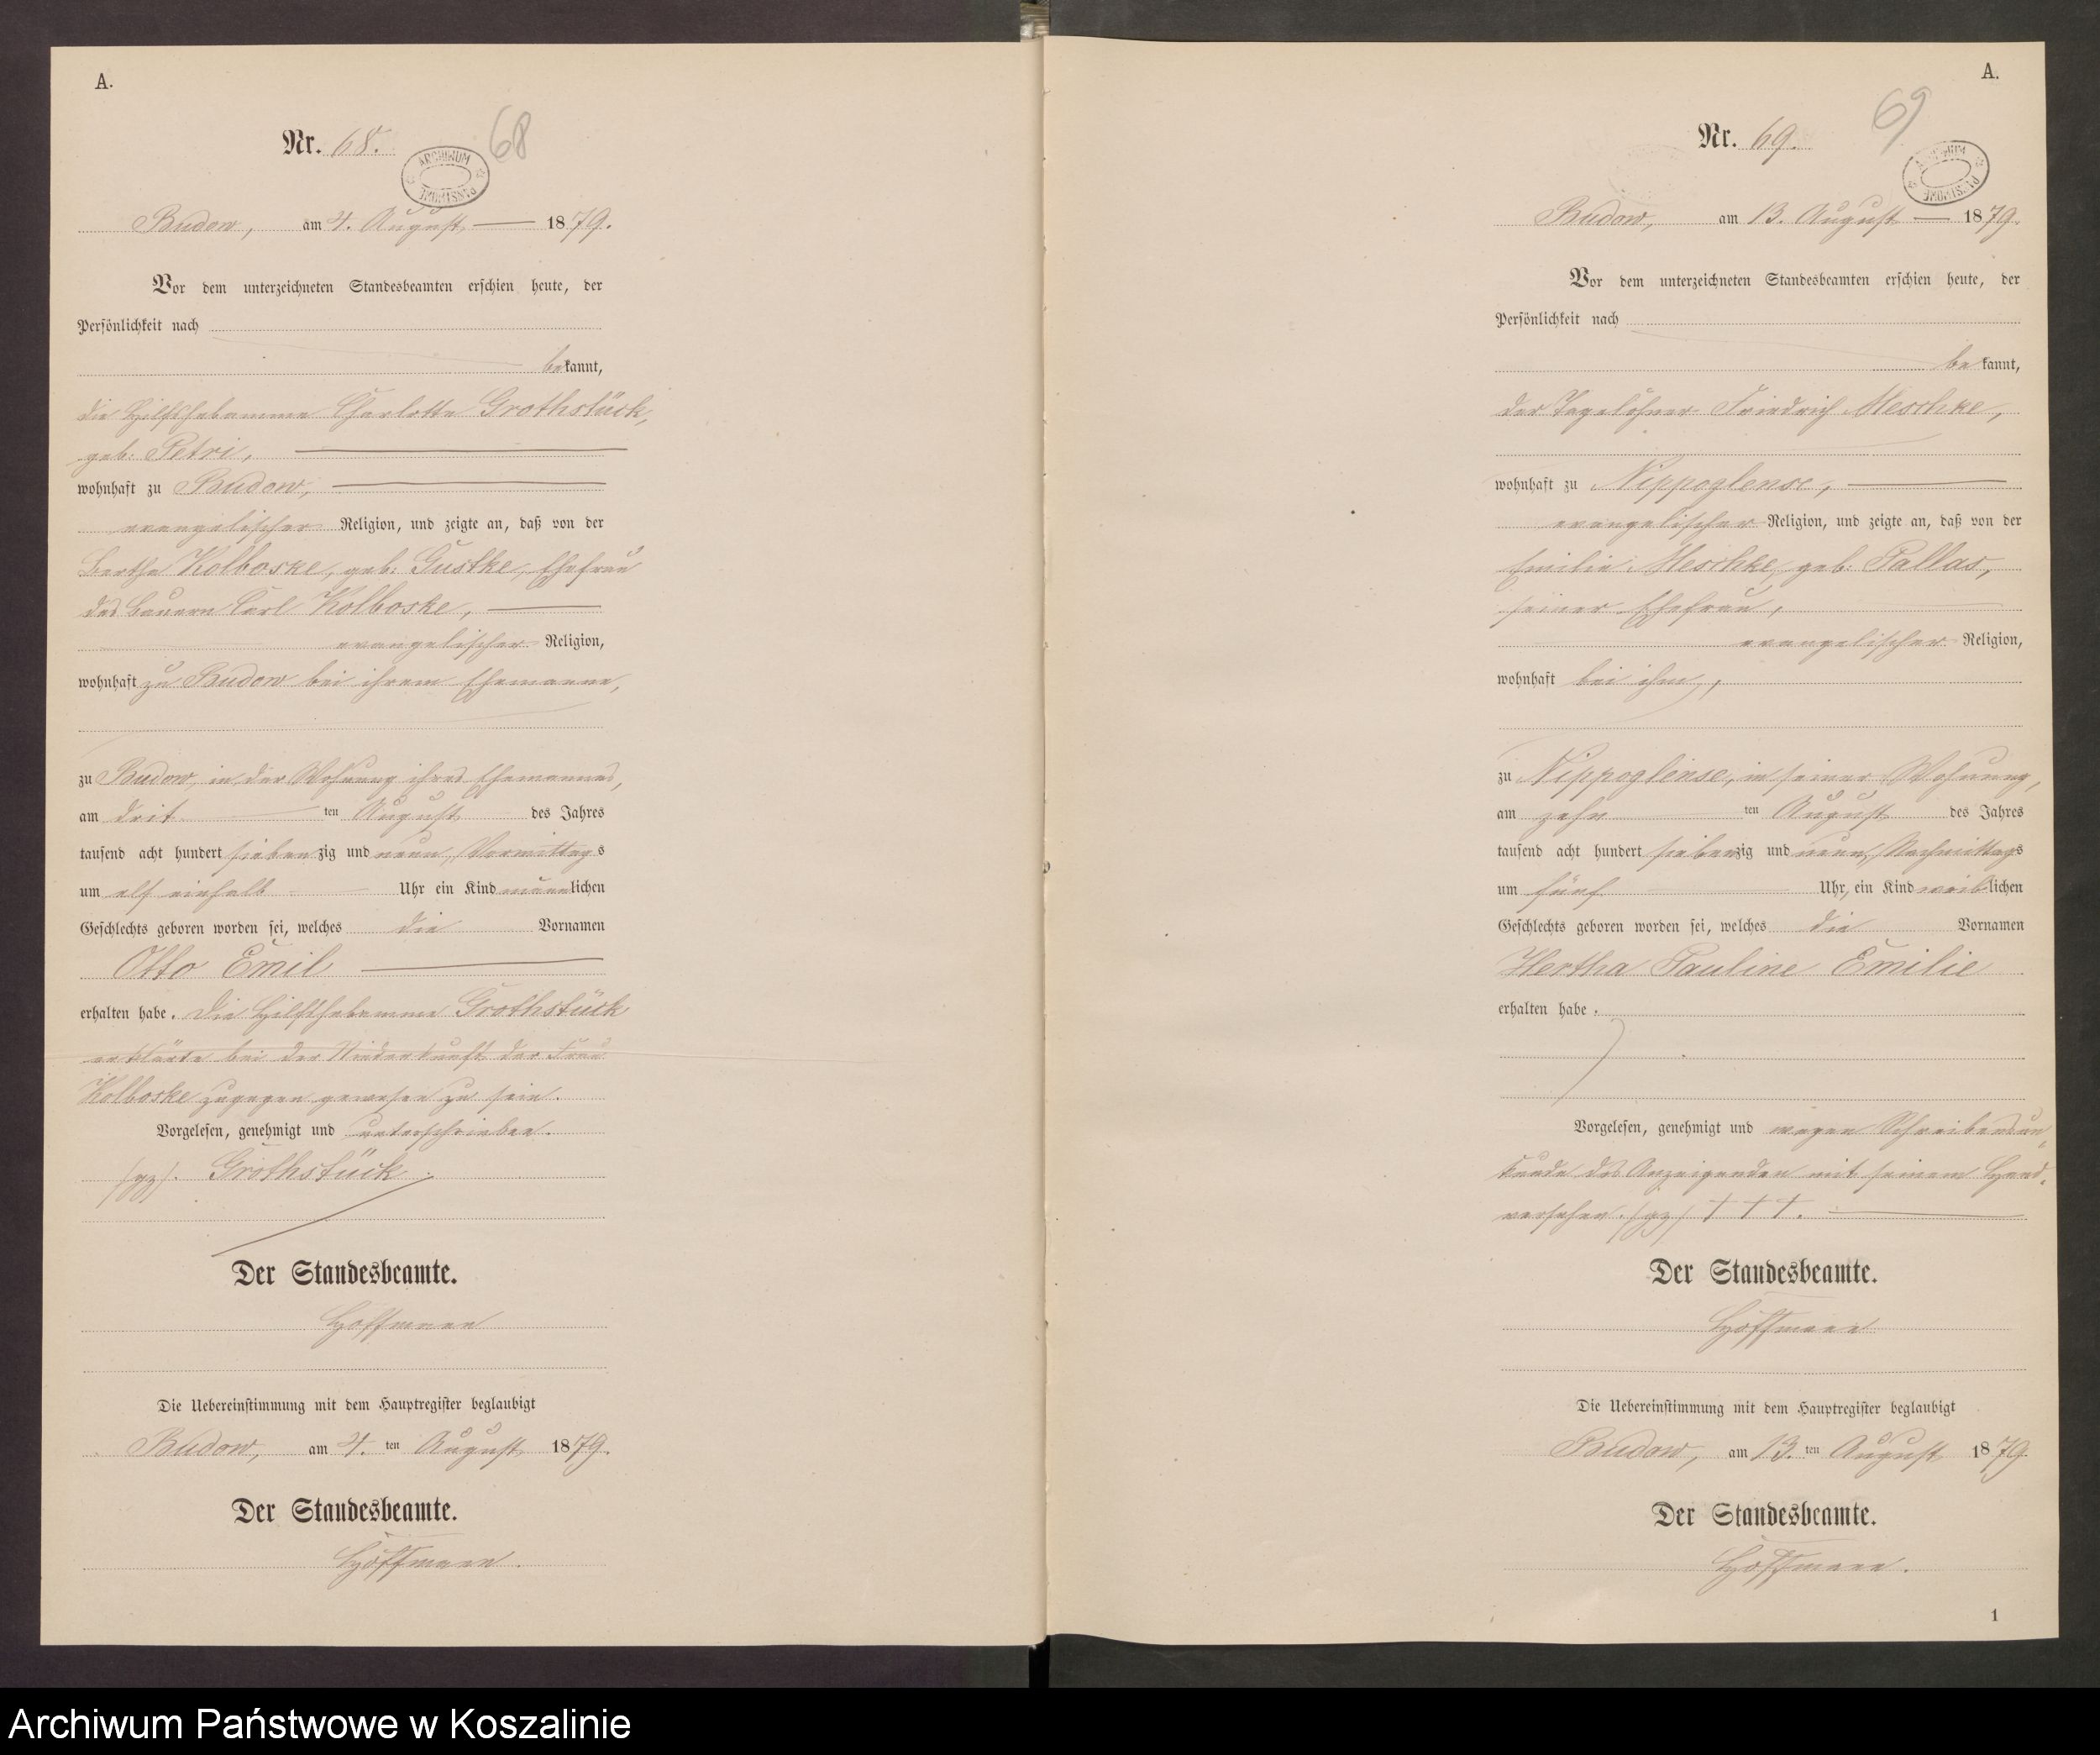 A.
Nr. 68.
68
ARCHIWUM PAŃSTWOWE
Budow, am 4. August 1879.
Vor dem unterzeichneten Standesbeamten erschien heute, der
Persönlichkeit nach
bekannt,
die Hilfshebamme Charlotte Grothstück,
geb. Petri,
wohnhaft zu Budow,
evangelischer Religion, und zeigte an, daß von der
Bertha Kolboske, geb. Gustke, Ehefrau
des Bauern Carl Kolboske,
evangelischer Religion,
wohnhaft zu Budow bei ihrem Ehemanne,
zu Budow, in der Wohnung ihres Ehemannes,
am drit ten August des Jahres
tausend acht hundert siebenzig und neun, Vormittags
um elf einhalb Uhr ein Kind männlichen
Geschlechts geboren worden sei, welches die Vornamen
Otto Emil
erhalten habe. Die Hilfshebamme Grothstück
erklärte bei der Niederkunft der Frau
Kolboske zugegen gewesen zu sein.
Vorgelesen, genehmigt und unterschrieben.
(gz). Grothstück.
Der Standesbeamte.
Hoffmann
Die Uebereinstimmung mit dem Hauptregister beglaubigt
Budow, am 4. ten August 1879.
Der Standesbeamte.
Hoffmann.
A.
Nr. 69.
69
ARCHIWUM PAŃSTWOWE
Budow, am 13. August 1879.
Vor dem unterzeichneten Standesbeamten erschien heute, der
Persönlichkeit nach
bekannt,
der Tagelöhner Friedrich Meschke,
wohnhaft zu Nippoglense,
evangelischer Religion, und zeigte an, daß von der
Emilie Meschke, geb. Pallas,
seiner Ehefrau,
evangelischer Religion,
wohnhaft bei ihm,
zu Nippoglense, in seiner Wohnung,
am zehn ten August des Jahres
tausend acht hundert siebenzig und neun, Nachmittags
um fünf Uhr, ein Kind weiblichen
Geschlechts geboren worden sei, welches die Vornamen
Hertha Pauline Emilie
erhalten habe.
Vorgelesen, genehmigt und wegen Schreibensun-
kunde des Anzeigenden mit seinem Hand-
versehen. (gz) † † †.
Der Standesbeamte.
Hoffmann
Die Uebereinstimmung mit dem Hauptregister beglaubigt
Budow, am 13. ten August 1879
Der Standesbeamte.
Hoffmann.
1
Archiwum Państwowe w Koszalinie